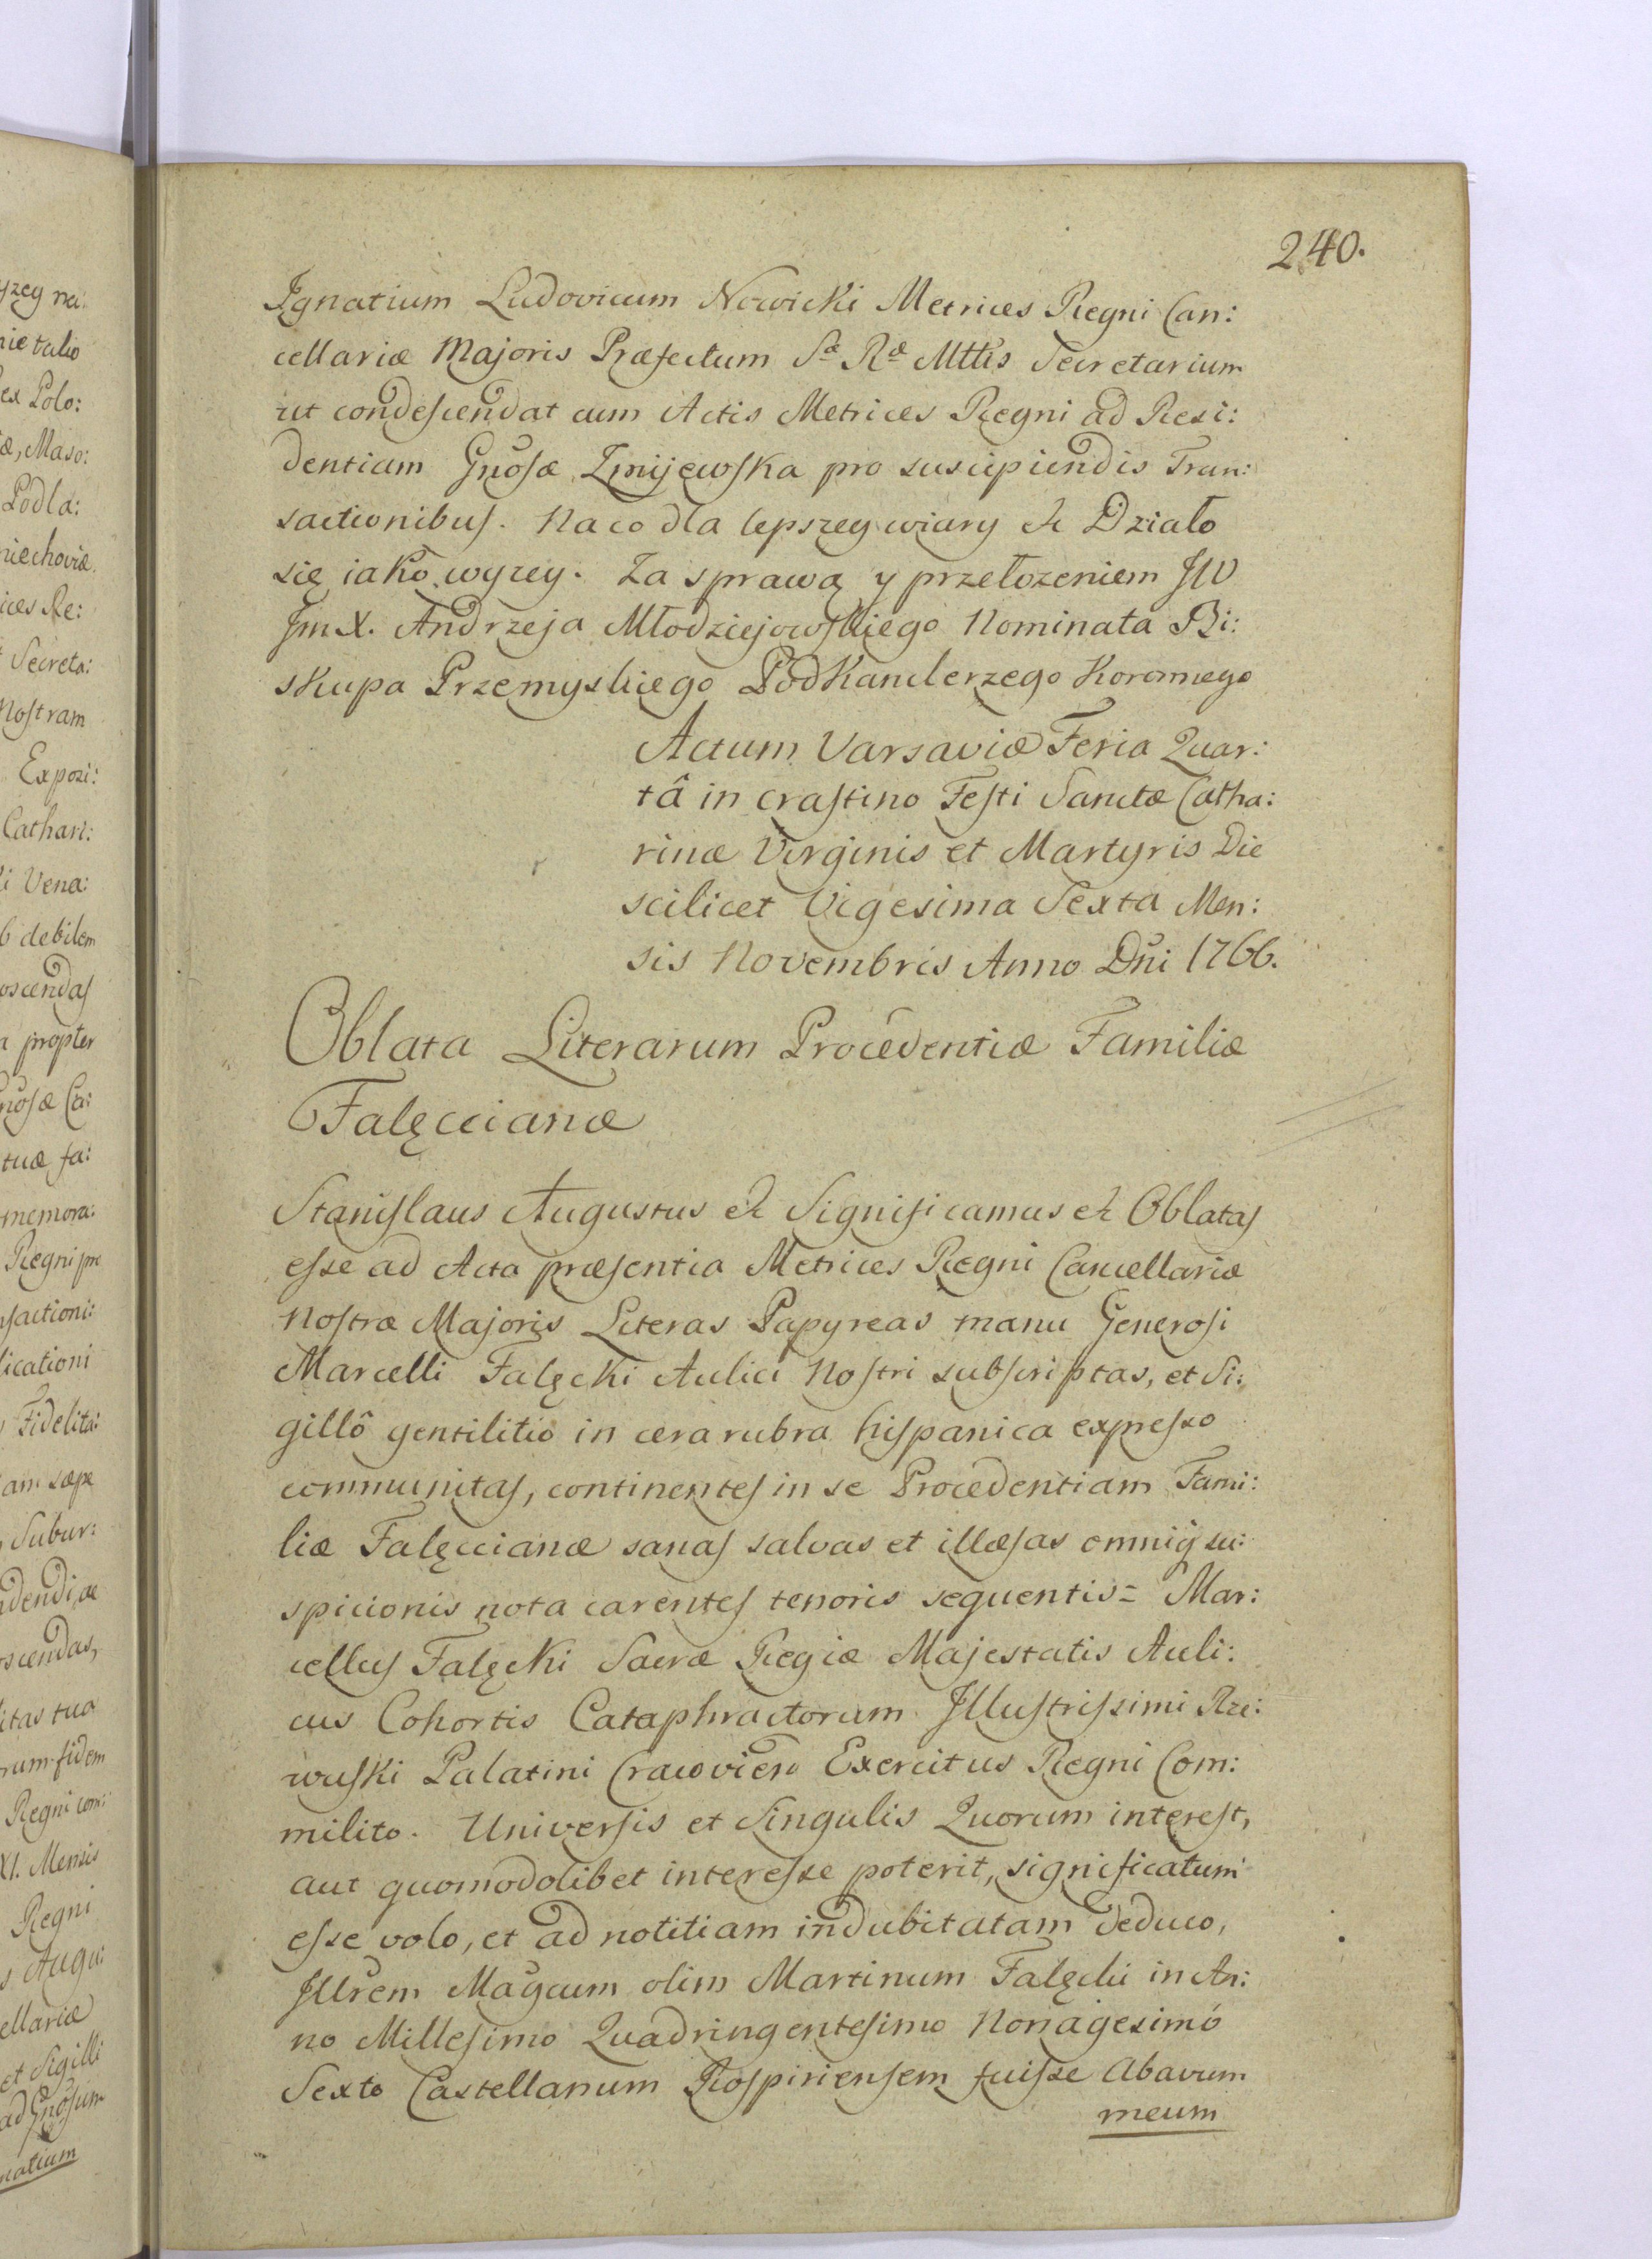 240.
Ignatium Ludovicum Nowicki Metrices Regni Can:
cellariæ Majoris Præfectum Sæ Ræ Mttis Secretarium
ut condescendat cum Actis Metrices Regni ad Resi:
dentiam Gnosæ Zmijewska pro suscipiendis Tran:
sactionibus. Na co dla lepszey wiary &c Działo
się iako wyzey. Za sprawą y przełozeniem JW
JmX. Andrzeja Młodziejowskiego Nominata Bi:
skupa Przemyskiego Podkanclerzego Koronnego
Actum Varsaviæ Feria Quar:
tâ in crastino Festi Sanctæ Catha:
rinæ Virginis et Martyris Die
scilicet Vigesima Sexta Men:
sis Novembris Anno Dni 1766.
Oblata Literarum Procedentiæ Familiæ
Falęccianæ
Stanislaus Augustus &c Significamus &c Oblatas
esse ad Acta præsentia Metrices Regni Cancellariæ
Nostræ Majoris Literas Papyreas manu Generosi
Marcelli Falęcki Aulici Nostri subscriptas, et Si:
gillô gentilitio in cera rubra hispanica expresso
communitas, continentes in se Procedentiam Fami:
liæ Falęccianæ sanas salvas et illæsas omniq su:
spicionis nota carentes tenoris sequentis= Mar:
cellus Falęcki Sacræ Regiæ Majestatis Auli:
cus Cohortis Cataphractorum Illustrissimi Rze:
wuski Palatini Cracovien Exercitus Regni Com:
milito. Universis et Singulis Quorum interest,
aut quomodolibet interesse poterit, significatum
esse volo, et ad notitiam indubitatam deduco,
Jllrem Magcum olim Martinum Falęcki in An:
no Millesimo Quadringentesimo Nonagesimó
Sexto Castellanum Rospiriensem fuisse Abavum
meum